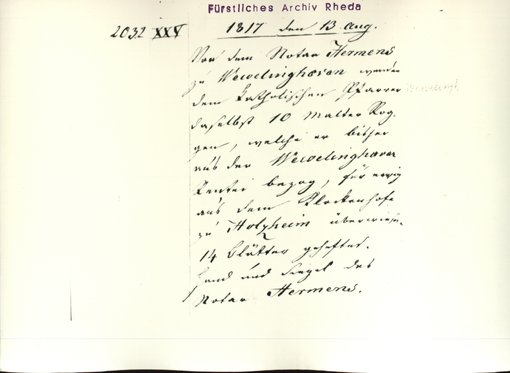 Fürstliches Archiv Rheda
2032 XXV
1817 den 13 Aug.
Vor dem Notar Hermens
zu Wevelinghoven werden
dem katholischen Pfarrer
daselbst 10 Malter Rog-
gen, welche er bisher
aus der Wevelinghover
Rentei bezog, für ewig
aus dem Klockenhofe
zu Holzheim überwiesen.
14 Blätter geheftet.
Hand und Siegel des
Notar Hermens.